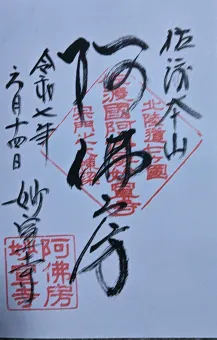 佐渡本山
阿佛房
妙宣寺
令和七年
六月十四日
阿佛房
妙宣寺